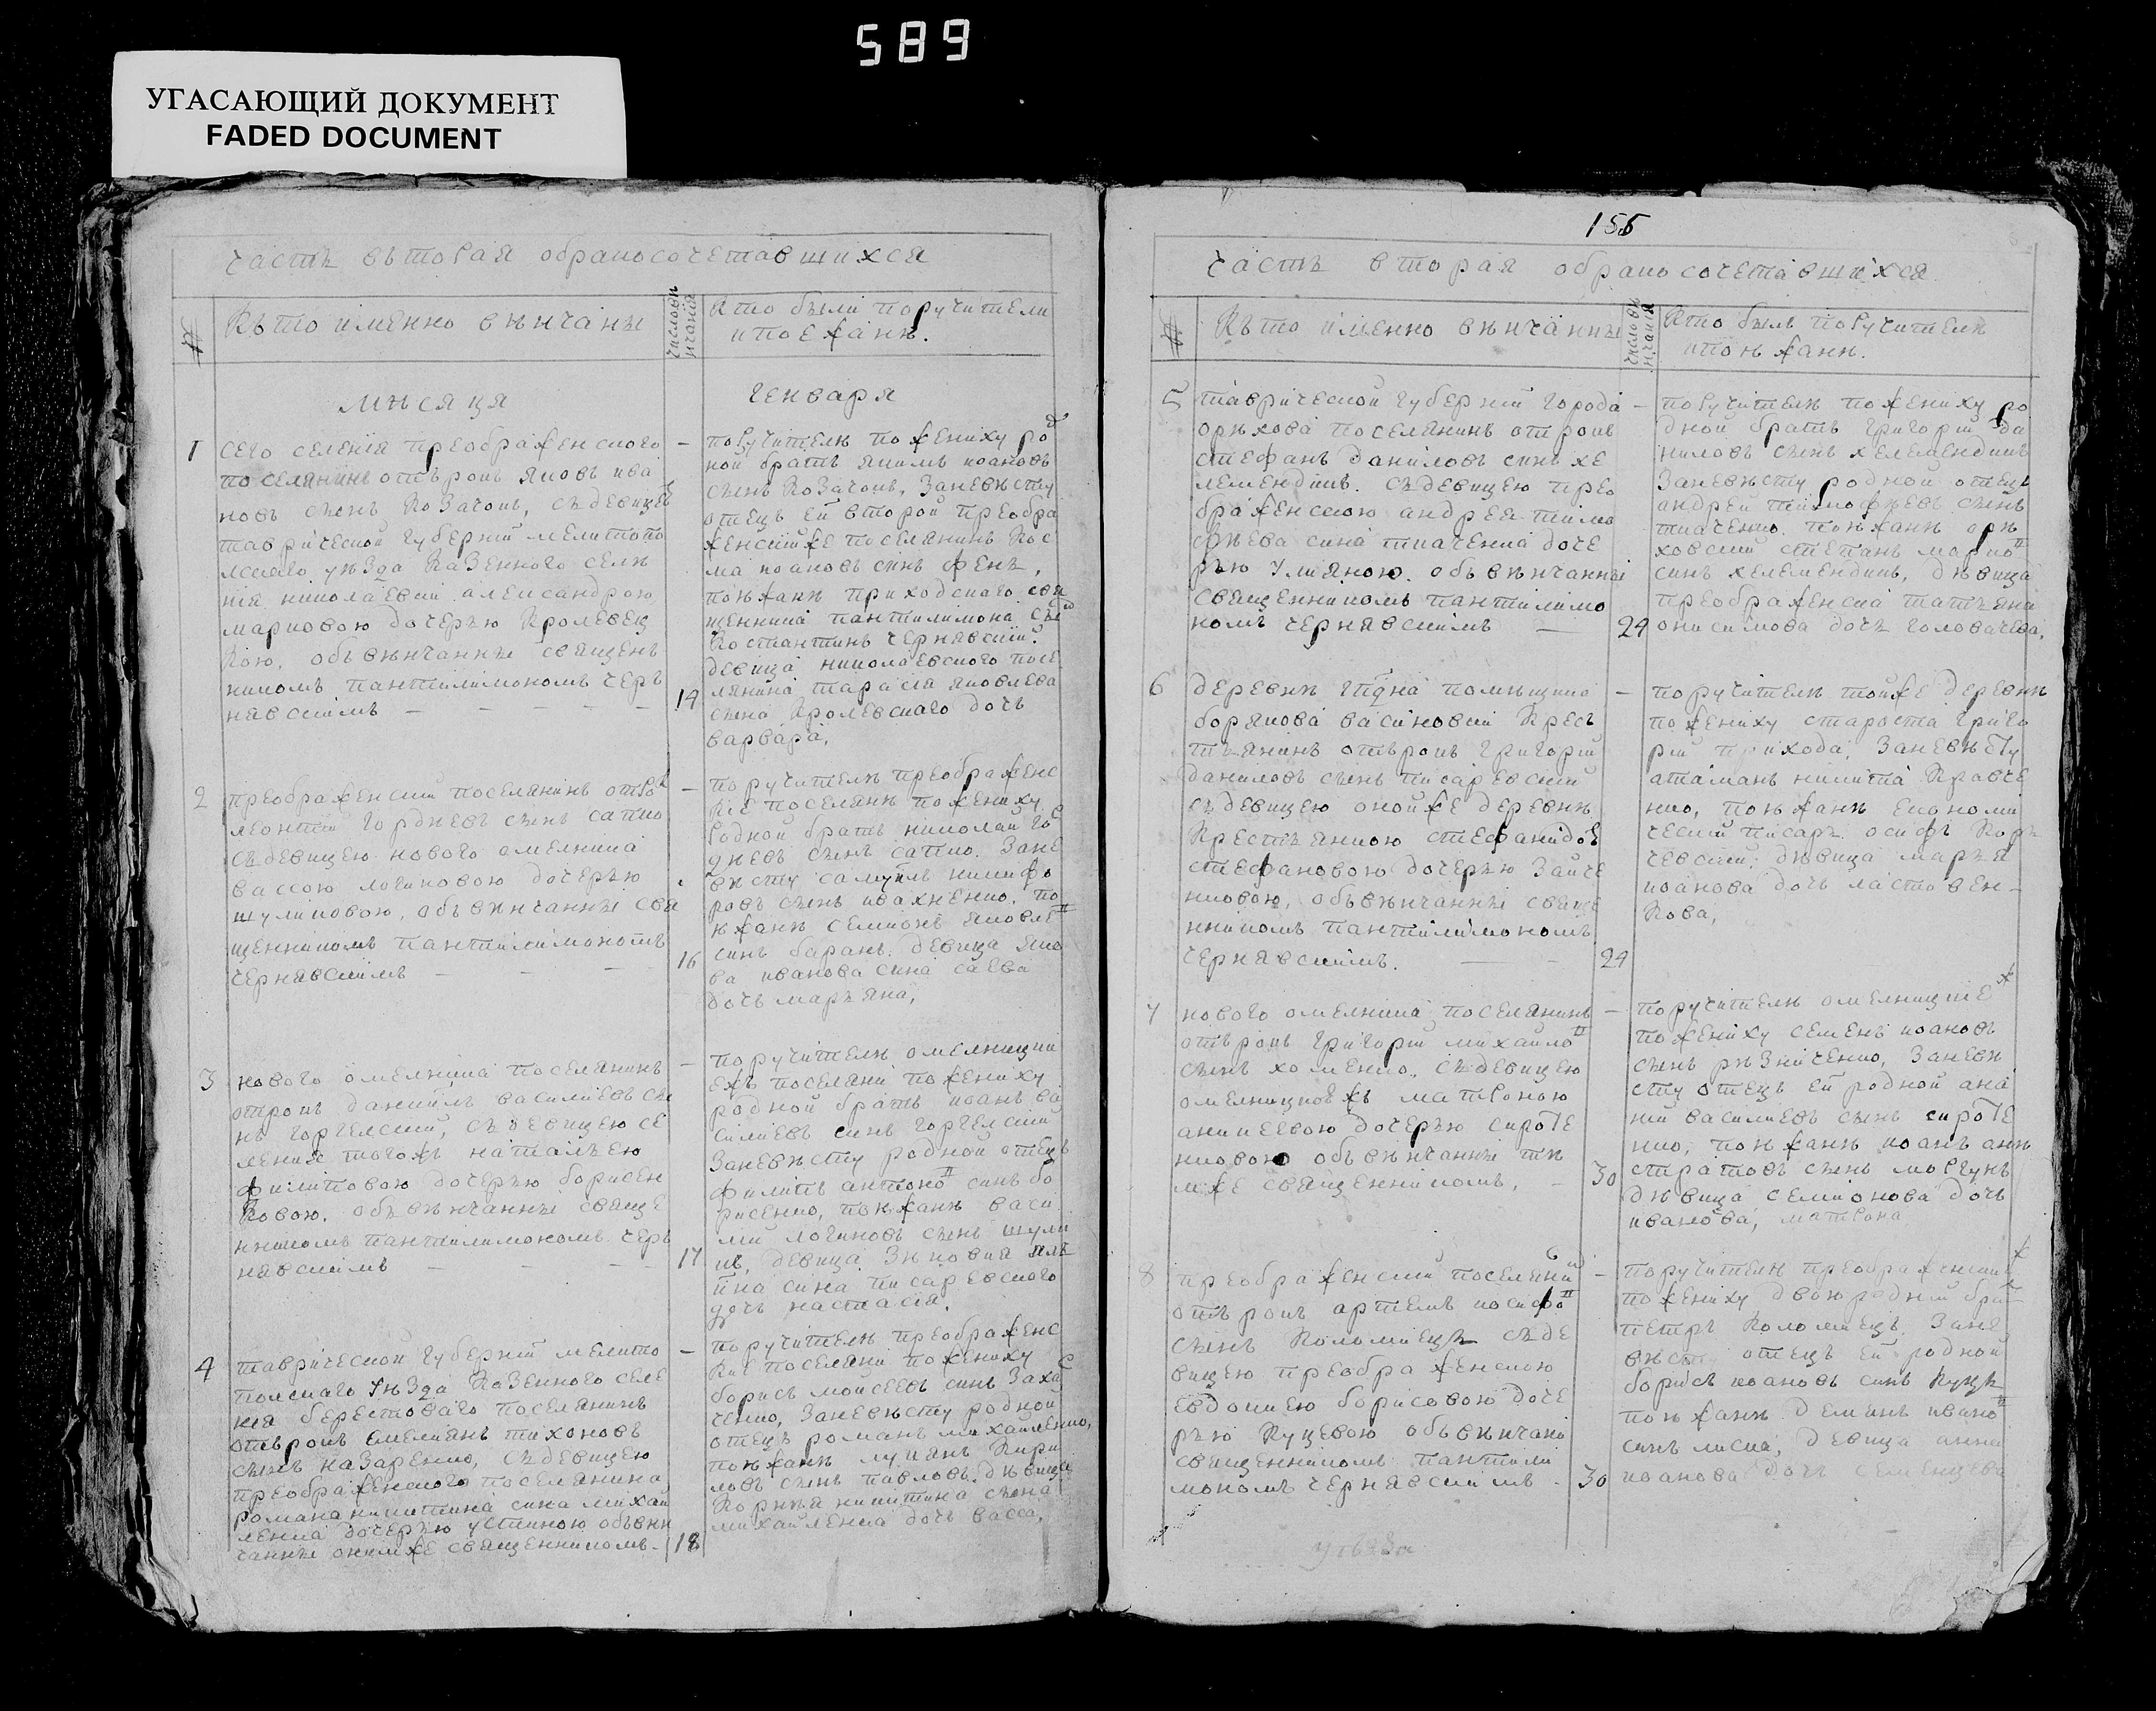 589
УГАСАЮЩИЙ ДОКУМЕНТ
FADED DOCUMENT
часть въторая обракосочетавшихся
№
Къто именно вѣнчаны
число вѣнчанія
Кто были поручители
и поежанѣ.
мѣсяця
генваря
1
сего селенія преображенского
поселянинъ отърокъ яковъ ива
новъ сынъ Козачокъ, съдевицею
таврической губерніи мелитопо
лского уѣзда Казенного селе
нія николаевки александрою
марковою дочерью Кролевец
кою, объвѣнчанны священъ
никомъ пантилимономъ черъ
нявскимъ
14
поручители пожениху род
ной братъ якимъ иоановъ
сынъ Козачокъ, Заневѣсту
отецъ ей второй преобра
женскійже поселянинъ Кос
ма иоановъ сынъ фень,
поѣжанѣ приходского свя
щенника пантилимона сынъ
Костантинъ чернявскій.
девица николаевского посе
лянина тарасія яковлева
сына Кролевского дочь
варвара,
2
преображенскій поселянинъ отърокъ
леонтій гордѣевъ сынъ сапко
съдевицею нового омелника
вассою логиновою дочерью
шуликовою, объвѣнчанны свя
щенникомъ пантилимономъ
чернявскимъ
16
поручители преображенс
кіе поселянѣ пожениху
родной братъ николай гор
дѣевъ сынъ сапко. Зане
вѣсту самуилъ никифо
ровъ сынъ ивахненко, по
ѣжанѣ семионъ яковлевъ
синъ баранъ. девица яко
ва иванова сина саева
дочь марьяна,
3
нового омелника поселянинъ
отрокъ даниилъ василиевъ сы
нъ горгелскій, съдевицею се
ления тогожъ наталъею
филиповою дочерью борисен
ковою, объвѣнчанны свяще
нникомъ пантилимономъ черъ
нявскимъ
17
поручители омелницкий
ежъ поселяни пожениху
родной братъ иоанъ ва
силиевъ синъ горгелскій
Заневѣсту родной отецъ
филипъ антоновъ синъ бо
рисенко, поѣжанѣ васи
лий логиновъ сынъ шули
къ, девица Зѣновия иль
ина сина писаревского
дочь настасія.
4
таврической губерніи мелито
полскаго уѣзда Казенного селе
нія берестоваго поселянинъ
отърокъ емелиянъ тихоновъ
сынъ назаренко, съдевицею
преображенского поселянина
романа никитина сина михай
ленка дочерью устиною объвѣн
чанны онимже священникомъ.
18
поручители преображенс
кие поселяни пожениху
борисъ моисеевъ синъ Заха
ченко, Заневѣсту родной
отецъ романъ михайленко,
поѣжанѣ лукянъ Кири
ловъ сынъ павловъ. дѣвица
Корнѣя никитина сына
михайленка дочь васса,
155
часть вторая обракосочетавшихся
№
Къто именно вѣнчанны
число вѣнчанія
Кто былъ поручителѣ
ипоѣжанѣ.
5
таврической губерній города
орѣхова поселянинъ отрокъ
стефанъ даниловъ синъ хе
лемендикъ. съдевицею прео
браженскою андрея тимо
фѣева сина ткаченка доче
рью улияною. объвѣнчанны
священникомъ пантилимо
номъ чернявскимъ
24
поручителѣ пожениху ро
дной братъ григорий да
ниловъ сынъ хелемендикъ
Заневѣсту родной отецъ
андрей тимофѣевъ сынъ
ткаченко. поѣжанѣ орѣ
ховский степанъ марковъ
синъ хелемендикъ, дѣвица
преображенска татъяна
онисимова дочь головачева,
6
деревнѣ господина помѣщика
борякова васиновки Крест
тьянинъ отърокъ григорий
даниловъ сынъ писаревский
съдевицею онойже деревнѣ
Крестьянкою стефанидою
стефановою дочерью Зайче
нковою, объвѣнчанны свяще
нникомъ пантилимономъ
чернявскимъ.
24
поручителѣ тойже деревнѣ
пожениху староста григо
рий прихода, Заневѣсту
атаманъ никита Кравче
нко, поѣжанѣ економи
ческий писаръ осифъ Кор
чевский; дѣвица маръя
иоанова дочь ластовен-
кова,
7
нового омелника поселянинъ
отърокъ григорій михайловъ
сынъ хоменко. съдевицею
омелницкоежъ матроною
аникеевою дочерью сироте
нковою объвѣнчанны тѣ
мже священникомъ,
30
поручителѣ омелницкиежъ
пожениху семенъ иоановъ
сынъ рѣзниченко, Заневѣ
сту отецъ ей родной ана
ній василиевъ сынъ сироте
нко, поѣжанѣ иоанъ анѣ
стратовъ сынъ моргунъ
дѣвица семионова дочь
иванова, матрона
8
преображенский поселянинъ
отърокъ артемъ иосифовъ
сынъ Коломиецъ съде
вицею преображенскою
евдокиею борисовою доче
рью Куцевою объвѣнчани
священникомъ пантили
мономъ чернявскимъ
30
поручителѣ преображенскиж
пожениху двоюродний братъ
петръ Коломиецъ. Зане
вѣсту отецъ ей родной
борисъ иоановъ синъ Куцъ
поѣжанѣ демянъ ивановъ
синъ лиска, девица анна
иоанова дочь семенцева